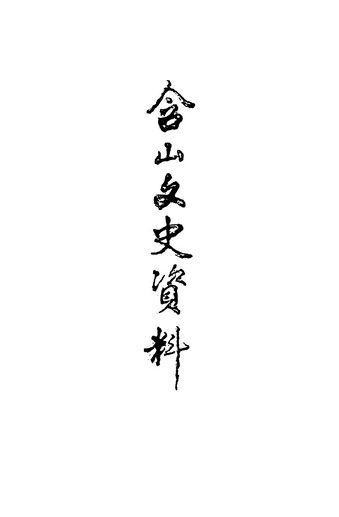 含山文史資料